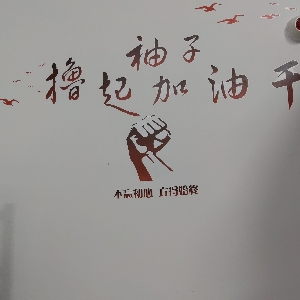 撸起袖子加油干
不忘初心 方得始终